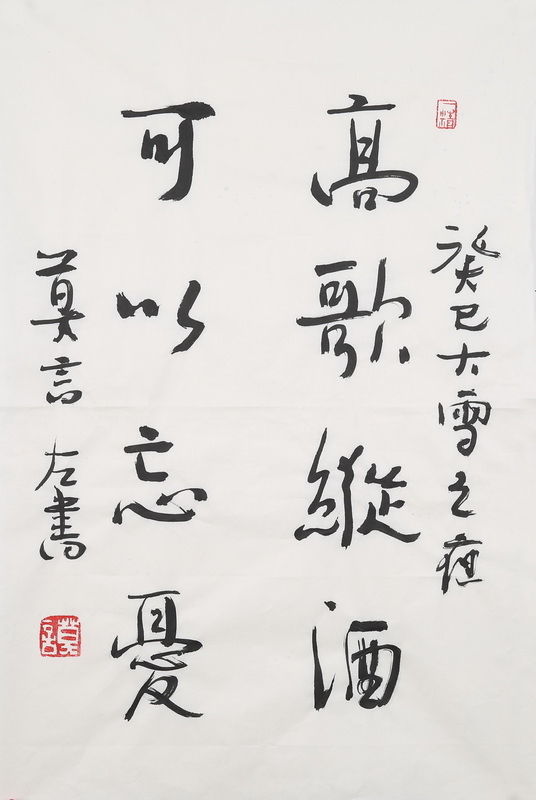 癸巳大雪之
高歌縱酒
可以忘憂
莫言 左書
莫言